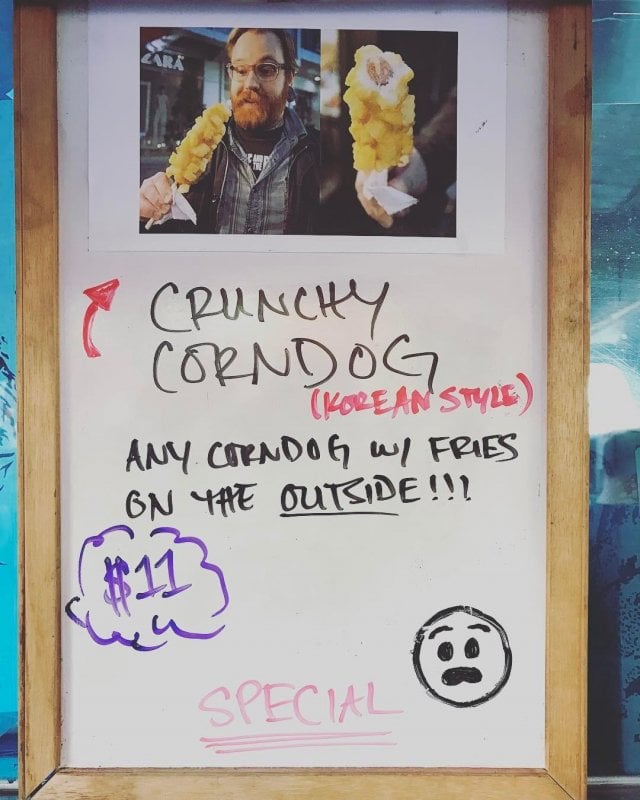 ZARA
CRUNCHY
CORNDOG
(KOREAN STYLE)
ANY CORNDOG W/ FRIES
ON THE OUTSIDE!!!
$11
SPECIAL